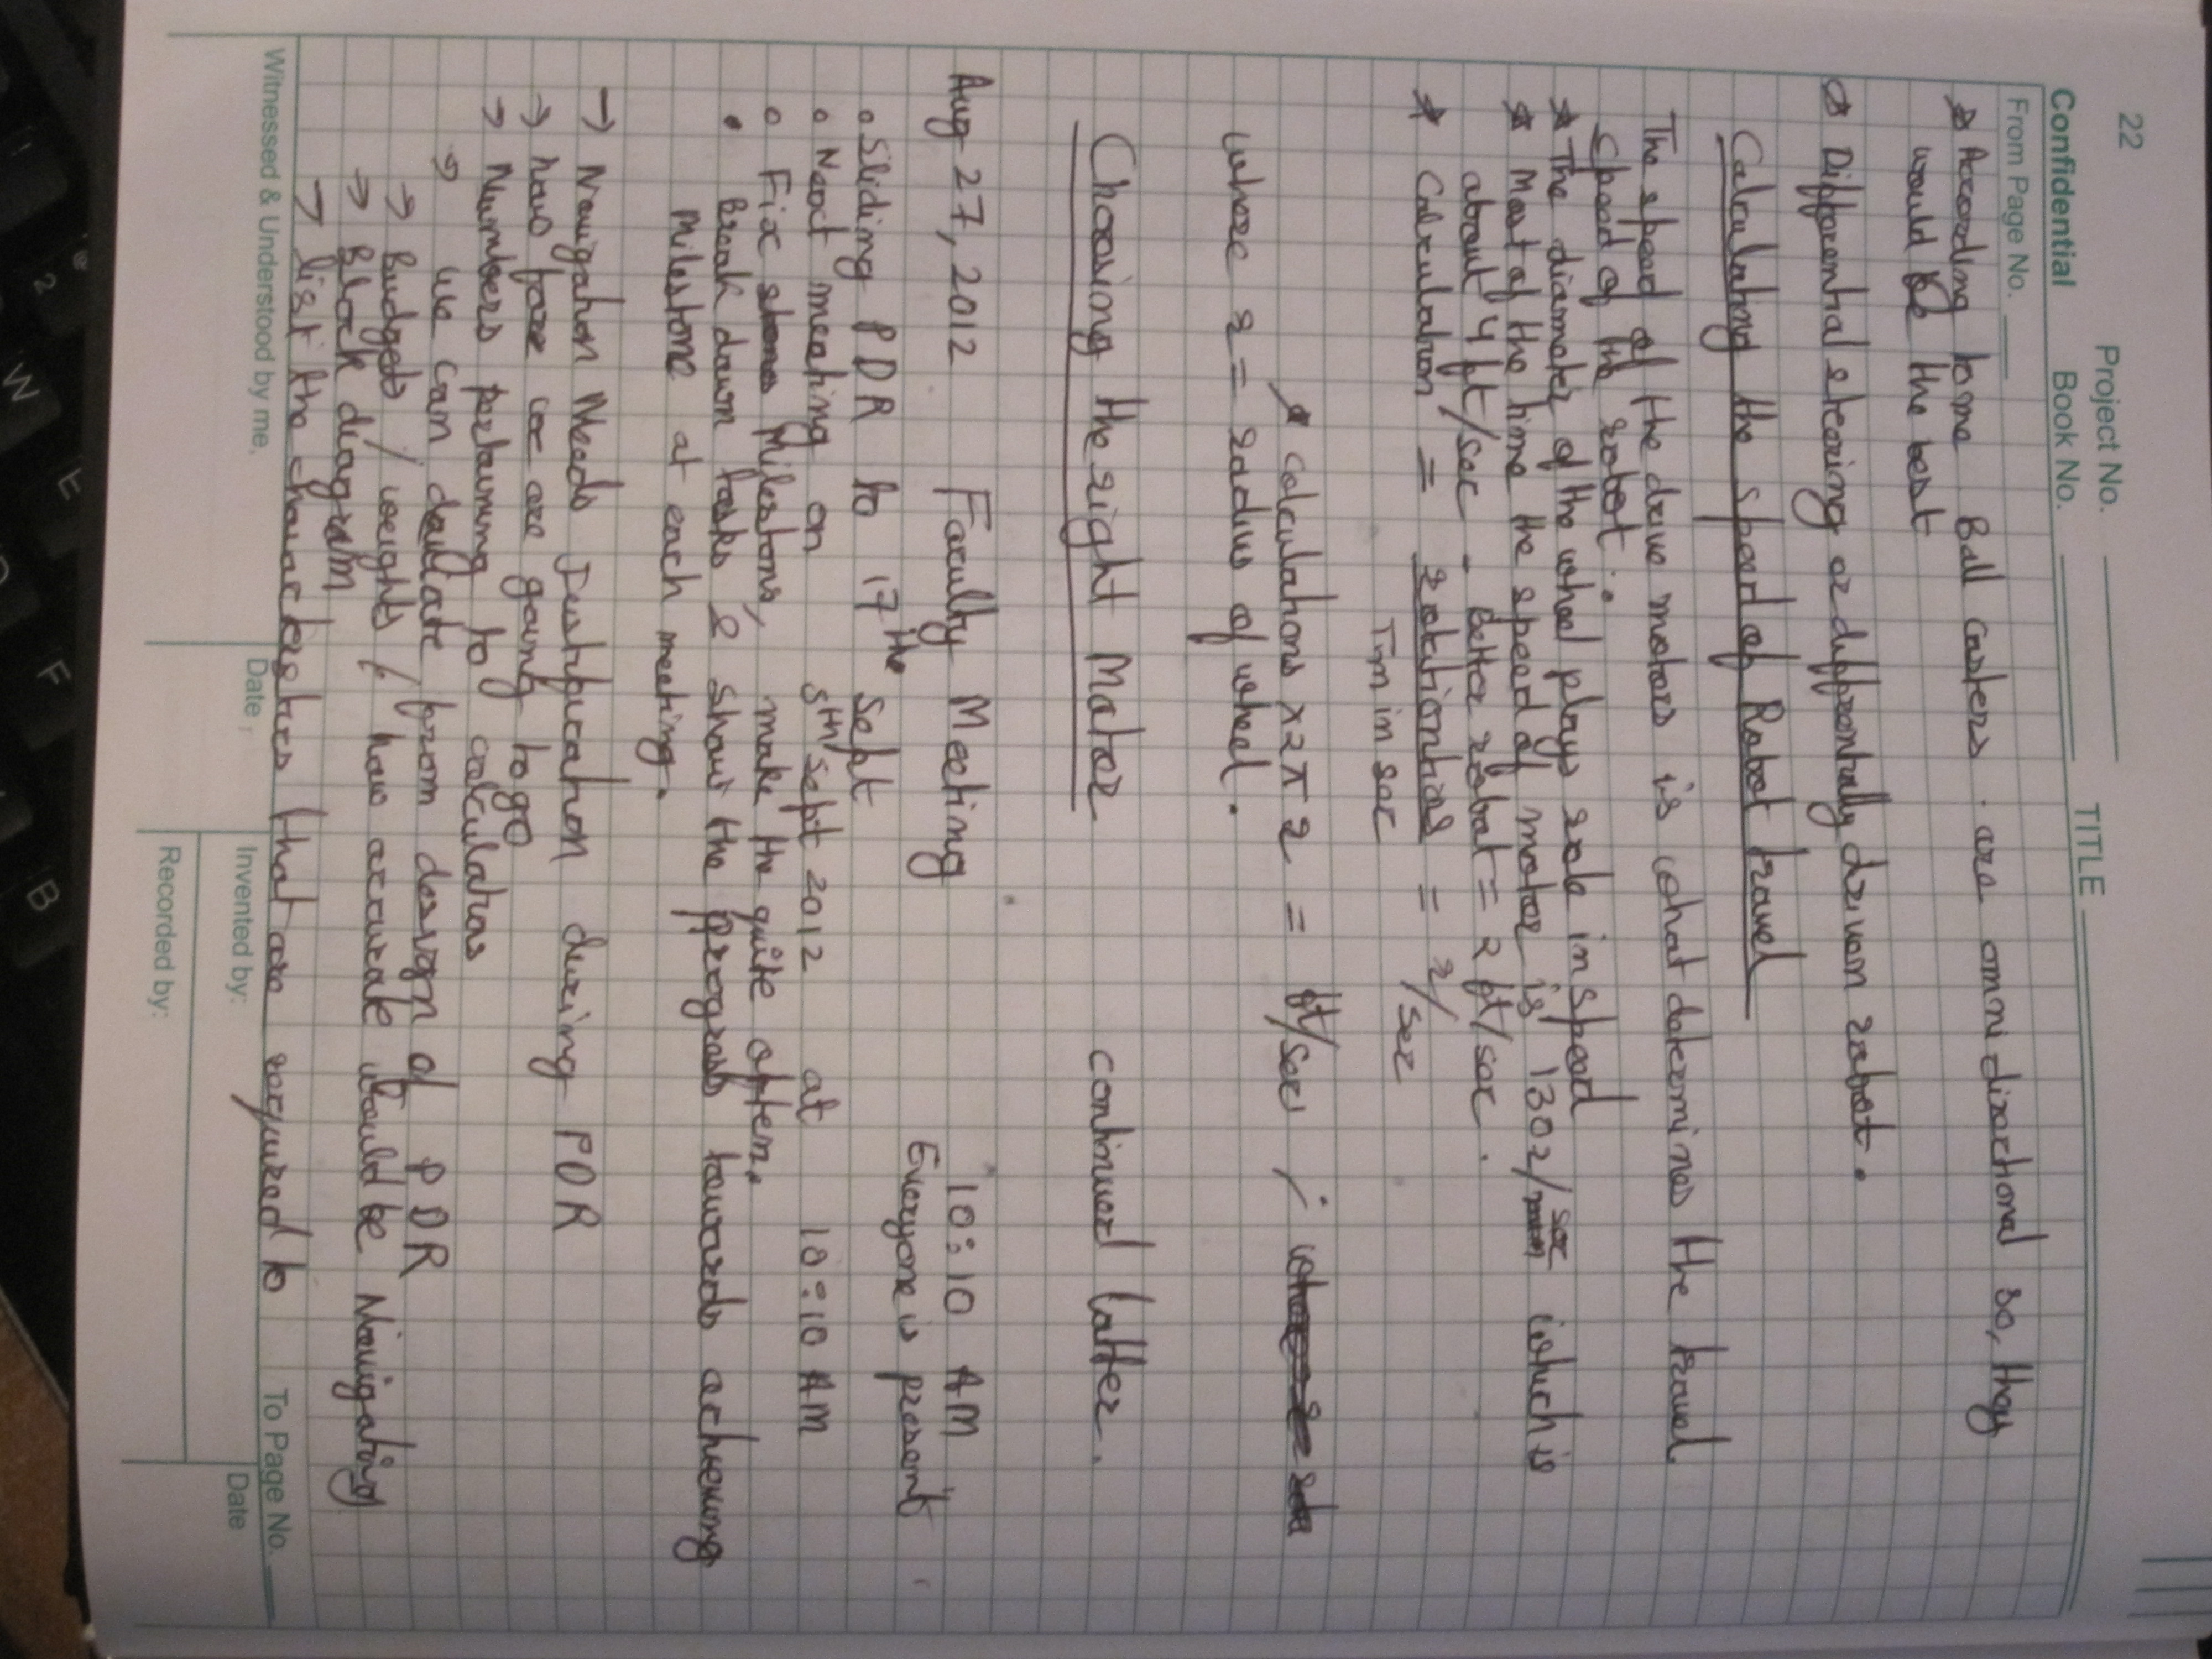 22
Project No.
Confidential Book No. TITLE
From Page No.
* According to me Ball casters are omnidirectional so, they
would be the best
* Differential stearing or differentially driven robot.
Calculating the speed of Robot travel
The speed of the drive motors is what determines the travel
speed of the robot.
* The diameter of the wheel plays role in speed
* Most of the time the speed of motor is 130r/sec which is
about 4 ft/sec - Better robot = 2 ft/sec.
* Calculation = = r/sec
Tim in sec
* calculations x2π r = ft/sec ;
where r = radius of wheel.
Choosing the right Motor continued latter.
Aug 27, 2012 Faculty Meeting 10:10 AM
Everyone is present
o Sliding PDR to 17 the Sept
o Next meeting on 5th Sept 2012 at 10:10 AM
o Fix Milestons, make the quite often.
• Break down tasks & show the progress towards achieving
Milestone at each meeting.
→ Navigation Needs Justification during PDR
→ how we are going to go
→ Numbers pertaining to calculations
→ we can deviate from design of PDR
→ Budgets / weights / how accurate would be Navigating
→ Block diagram
→ List the characteristics that are required to
To Page No.
Witnessed & Understood by me. Date Invented by: Date
Recorded by:
2 W E F B